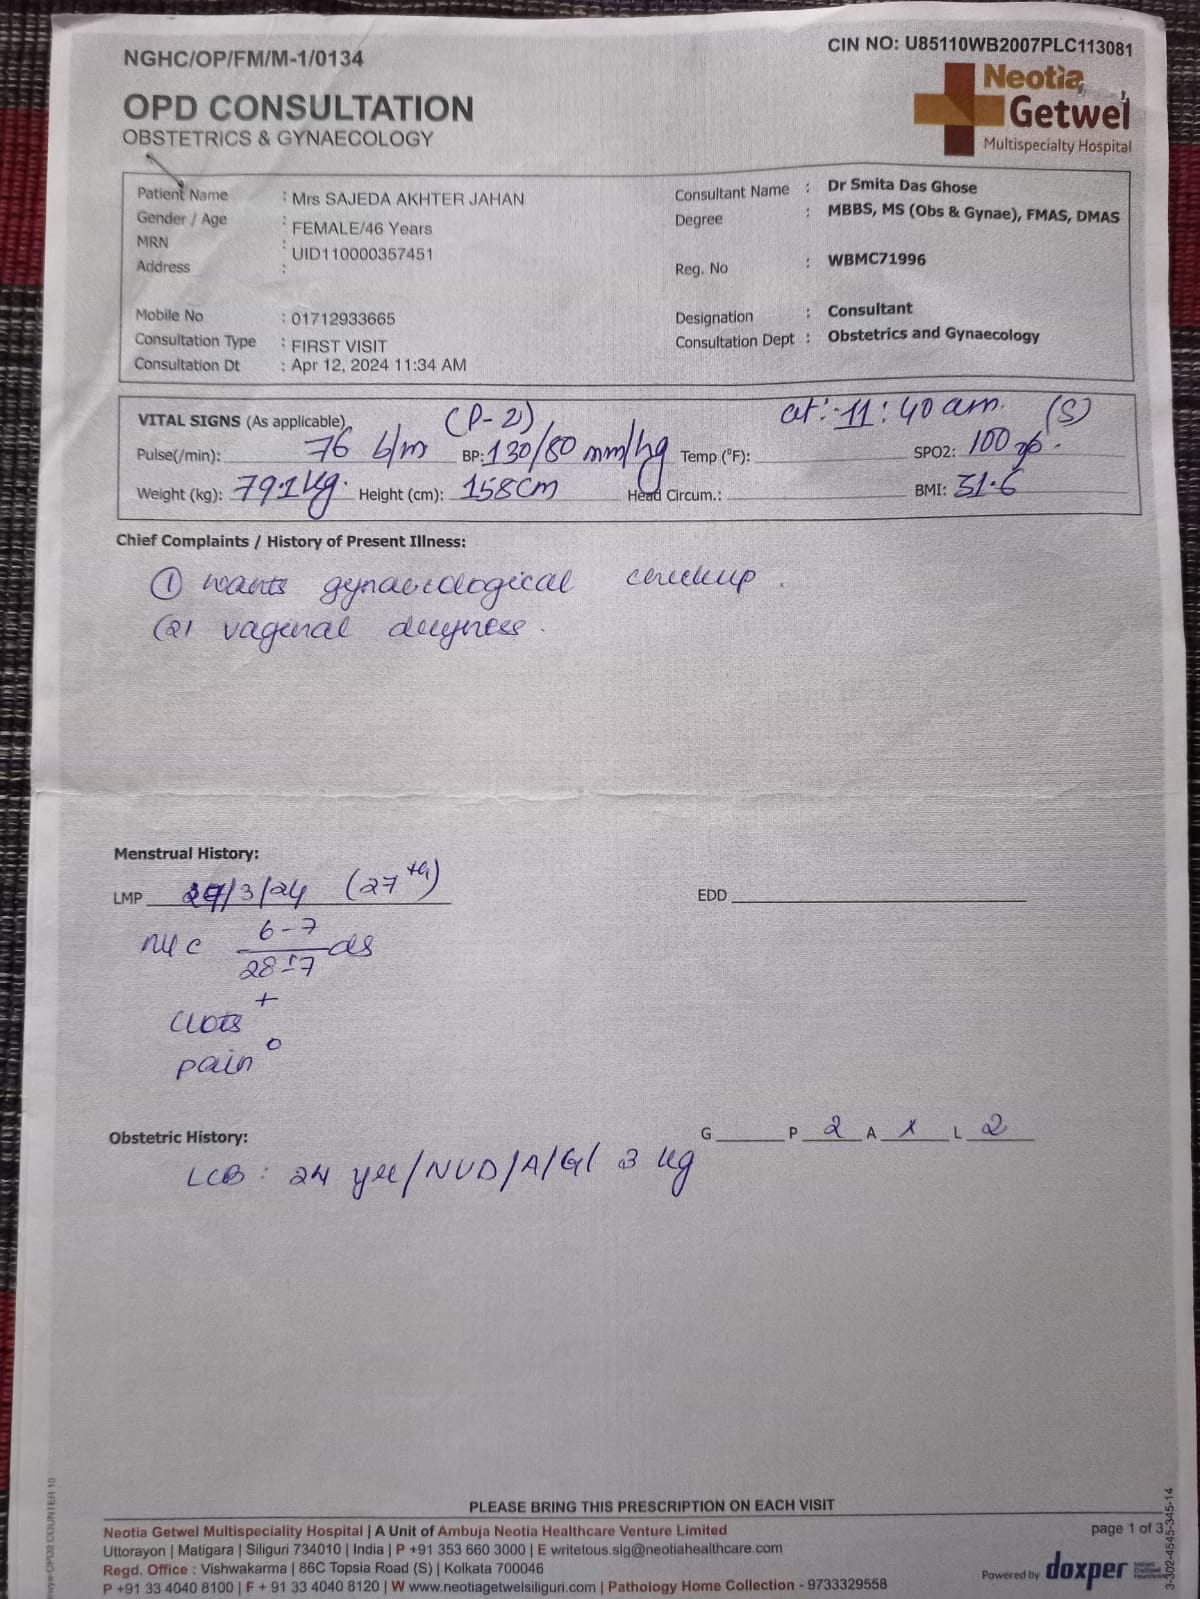 NGHC/OP/FM/M-1/0134
CIN NO: U85110WB2007PLC113081
OPD CONSULTATION
OBSTETRICS & GYNAECOLOGY
Neotia
Getwel
Multispecialty Hospital
Patient Name : Mrs SAJEDA AKHTER JAHAN
Gender / Age : FEMALE/46 Years
MRN : UID110000357451
Address :
Mobile No : 01712933665
Consultation Type : FIRST VISIT
Consultation Dt : Apr 12, 2024 11:34 AM
Consultant Name : Dr Smita Das Ghose
Degree : MBBS, MS (Obs & Gynae), FMAS, DMAS
Reg. No : WBMC71996
Designation : Consultant
Consultation Dept : Obstetrics and Gynaecology
VITAL SIGNS (As applicable) (P-2) at:-11:40 am. (S)
Pulse(/min): 76 b/m BP: 130/80 mm/hg Temp (°F): SPO2: 100%.
Weight (kg): 79.1kg. Height (cm): 158cm Head Circum.: BMI: 31.6
Chief Complaints / History of Present Illness:
① wants gynaecological checkup.
(2) vaginal dryness.
Menstrual History:
LMP /3/24 (27th) EDD
6-7
28±7 ds
clots +
pain o
Obstetric History: G P 2 A x L 2
LCB: 24 yrs/NVD/A/G/ 3 kg
PLEASE BRING THIS PRESCRIPTION ON EACH VISIT
Neotia Getwel Multispeciality Hospital | A Unit of Ambuja Neotia Healthcare Venture Limited
Uttorayon | Matigara | Siliguri 734010 | India | P +91 353 660 3000 | E writetous.slg@neotiahealthcare.com
Regd. Office : Vishwakarma | 86C Topsia Road (S) | Kolkata 700046
P +91 33 4040 8100 | F + 91 33 4040 8120 | W www.neotiagetwelsiliguri.com | Pathology Home Collection - 9733329558
page 1 of 3
Powered by doxper
3-302-4545-345-14
OPD2 COUNTER 10